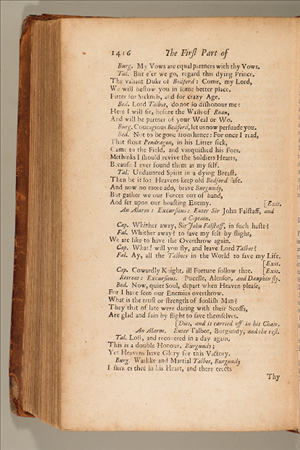 1416 The First Part of
Burg. My Vows are equal partners with thy Vows.
Tal. But e'er we go, regard this dying Prince,
The valiant Duke of Bedford: Come, my Lord,
We will bestow you in some better place,
Fitter for Sickness, and for crazy Age.
Bed. Lord Talbot, do not so dishonour me:
Here I will sit, before the Walls of Roan,
And will be partner of your Weal or Wo.
Burg. Courageous Bedford, let us now persuade you.
Bed. Not to be gone from hence: For once I read,
That stout Pendragon, in his Litter sick,
Came to the Field, and vanquished his Foes.
Methinks I should revive the Soldiers Hearts,
Because I ever found them as my self.
Tal. Undaunted Spirit in a dying Breast,
Then be it so: Heavens keep old Bedford safe.
And now no more ado, brave Burgundy,
But gather we our Forces out of hand,
And set upon our boasting Enemy. [Exit.
An Alarm: Excursions: Enter Sir John Falstaff, and
a Captain.
Cap. Whither away, Sir John Falstaff, in such haste?
Fal. Whither away? to save my self by flight,
We are like to have the Overthrow again.
Cap. What! will you fly, and leave Lord Talbot?
Fal. Ay, all the Talbots in the World to save my Life.
[Exit.
Cap. Cowardly Knight, ill Fortune follow thee. [Exit.
Retreat: Excursions. Pucelle, Alenson, and Dauphin fly.
Bed. Now, quiet Soul, depart when Heaven please,
For I have seen our Enemies overthrown.
What is the trust or strength of foolish Man?
They that of late were daring with their Scoffs,
Are glad and fain by flight to save themselves.
[Dies, and is carried off in his Chair.
An Alarm. Enter Talbot, Burgundy, and the rest.
Tal. Lost, and recovered in a day again,
This is a double Honour, Burgundy;
Yet Heavens have Glory for this Victory.
Burg. Warlike and Martial Talbot, Burgundy
Inshrines thee in his Heart, and there erects
Thy